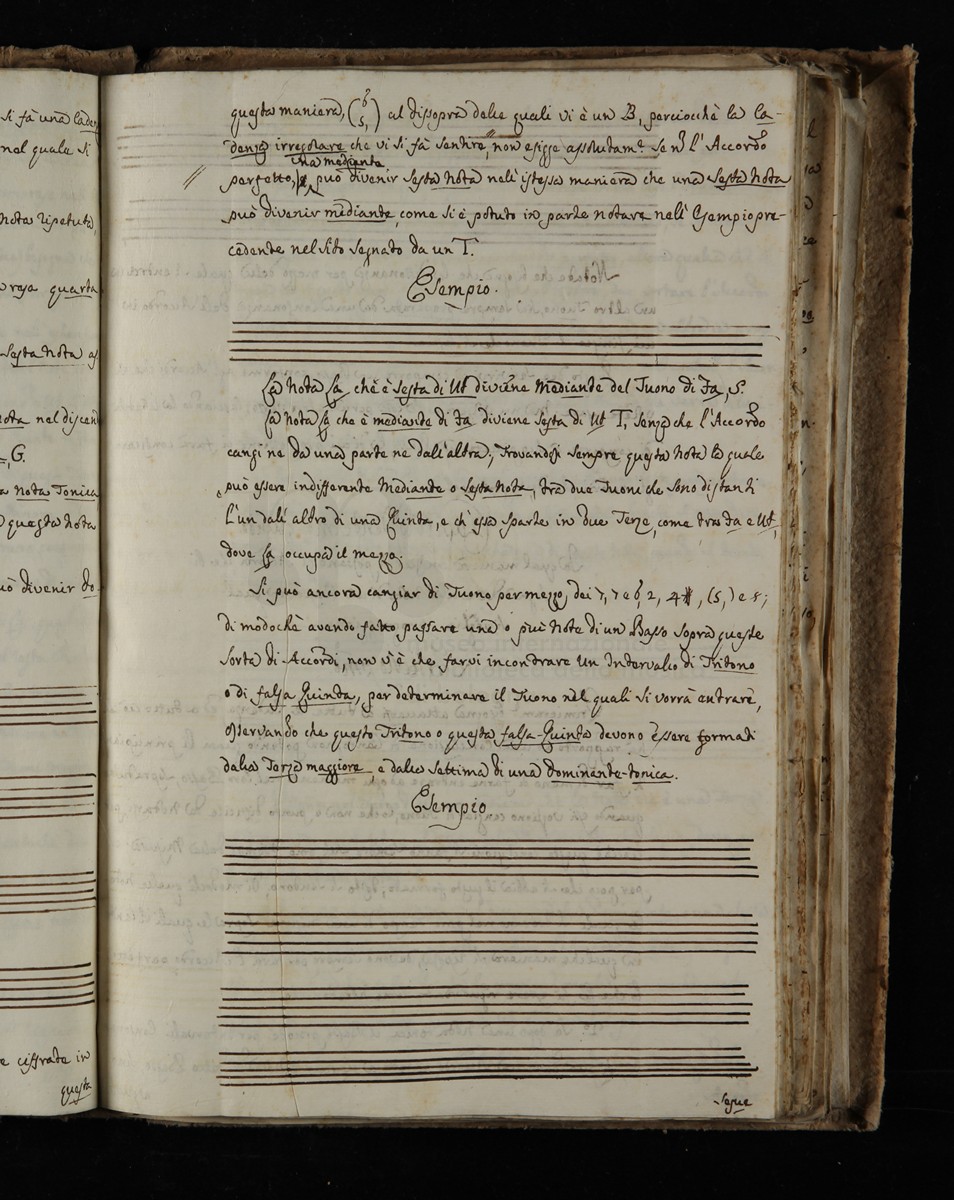 si fà una Caden
nel quale si
nota ripetuta,
quarta
Sesta Nota
nota nel discen
G.
a Nota Tonica
questa nota
uò divenir do
e cifrate in
questa
questa maniera, (6 5,) al dissopra delle quali vi è un B, perciocchè la Ca-
denza irregolare che vi si fà sentire, non esigge assolutamte. se nò l'Accordo
Una mediante
perfetto, può divenir Sesta Nota nell'istessa maniera che una Sesta Nota
può divenir mediante, come si è potuto in parte notare nell'Esempio pre-
cedente nel sito segnato da un T.
Esempio.
La Nota La, che è Sesta di Ut diviene Mediante del Tuono di Fa, S.
La Nota La che è mediante di Fa diviene Sesta di Ut T, senza che l'Accordo
cangi ne da una parte ne dall'altra; Trovandosi sempre questa Nota la quale
può essere indifferente Mediante o Sesta Nota, trà due Tuoni che sono distanti
l'un dall'altro di una Quinta, e ch'essa sparte in due Terze, come tra Fa e Ut,
dove La occupa il mezzo.
Si può ancora cangiar di Tuono per mezzo dei 7, 7 e 6, 2, 4#, (5,) e 8;
di modochè avendo fatto passare una o più Note di un Basso sopra queste
sorte di Accordi, non v'è che farvi incontrare un Intervallo di Tritono
o di falsa Quinta, per determinare il Tuono nel quali si vorrà entrare,
osservando che questo Tritono o questa falsa-Quinta devono essere formati
dalla Terza maggiore, e dalla settima di una Dominante-tonica.
Esempio
Segue